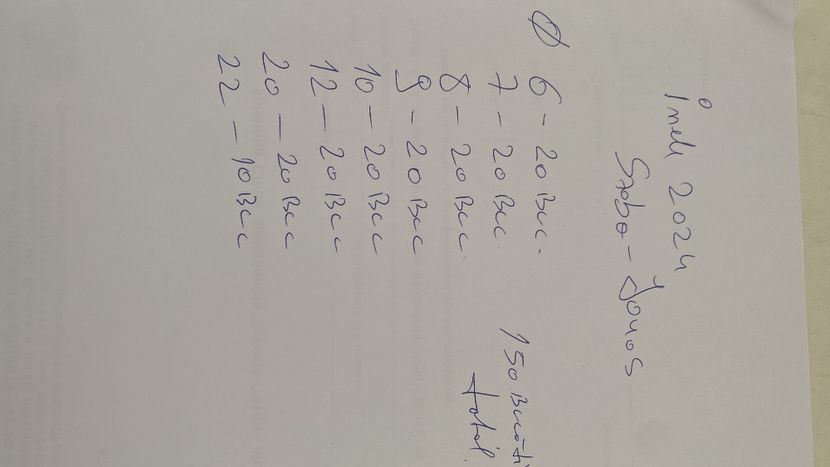 Inele 2024
Szabo - Janos
Ø
6 - 20 Buc.
7 - 20 Buc.
8 - 20 Buc.
9 - 20 Buc
10 - 20 Buc
12 - 20 Buc
20 - 20 Buc
22 - 10 Buc
150 Bucăti
total.